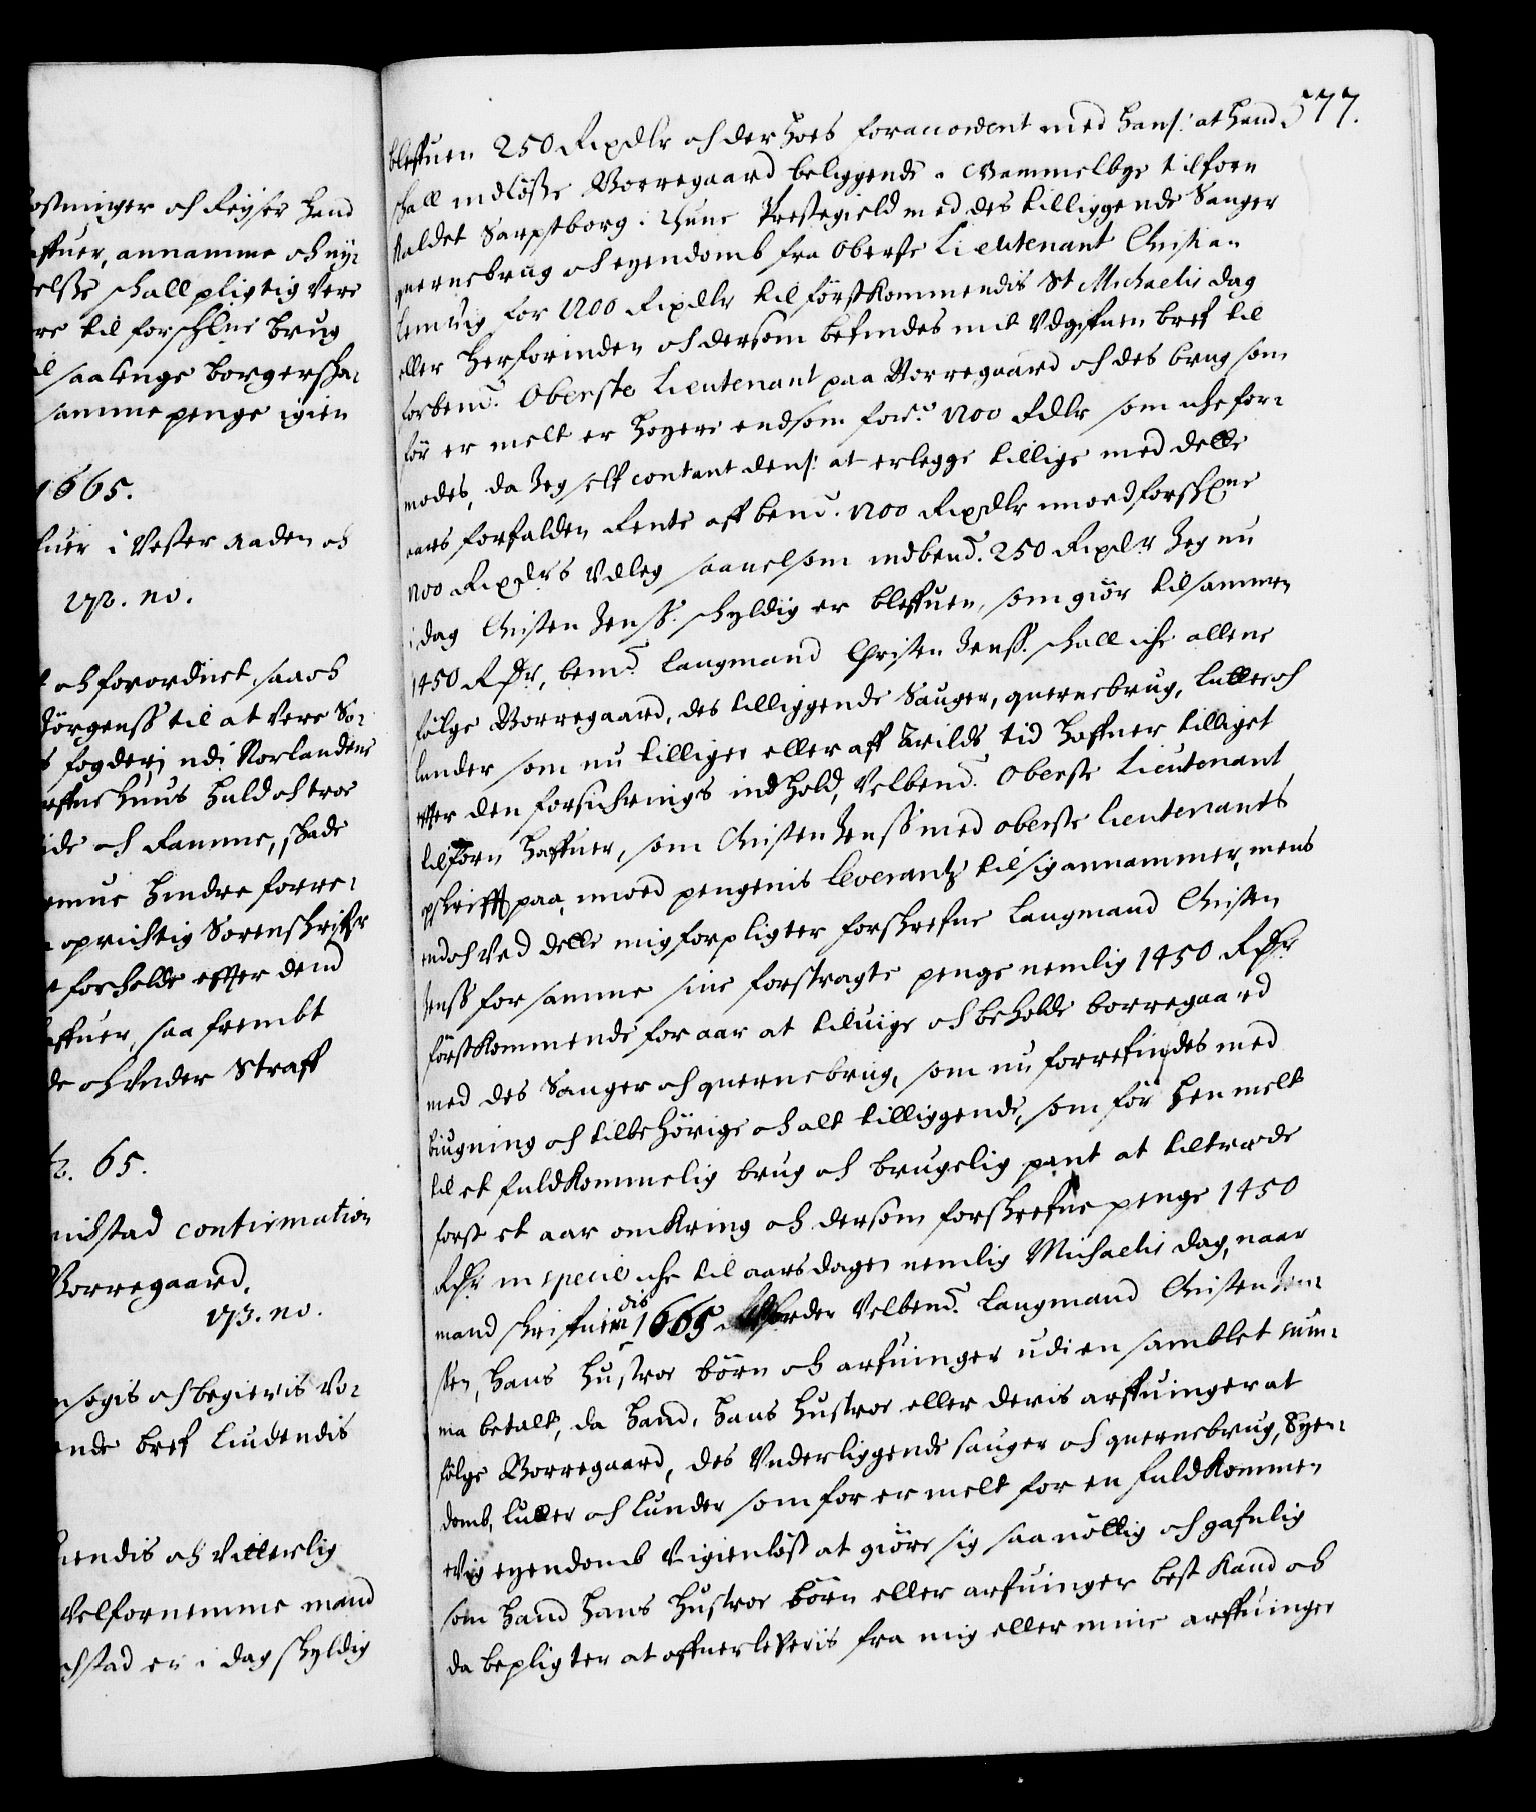 ostninger och Reyser hand
affuer, annamme och ny¬
elsse schall pligtig vere
re til forschlne brug
saalenge borgerscha¬
samme penge igien
1665.
i Vester Aaden och
172. no.
och forordnet, saa och
Jörgenss til at vere So¬
fogderj udi Norlandene
huus huld och troe
och Ramme, skade
hindre forre¬
oprichtig Sorenskriffr
forholde effter dend
affuer, saa frembt
de och under Straff
65.
stad confirmation
Borregaard.
173. no.
søgis och begieris Vo¬
ende bref liudendis
endis och Vitterlig
Velfornemme mand
stad er i dag skyldig
577.
bleffuen 250 Rixdlr och der hoes foraccordent med hans: at hand
schall indlösse Borregaard beliggende i Gammelbye tilforn
Kaldet Sarpsborg i Thune Prestegield med des tilliggende Sauger
quernebrug och eyendomb fra Oberste Lieutenant Christian
lemvig for 1200 Rixdlr til förstkommendis St Michaelis dag
eller herforinden och dersom befindes mit Udgifuen bref til
forbend. Oberste Lieutenant paa Borregaard och des brug som
för er melt er høyere end som ford. 1200 Rdlr som iche for¬
modes, da Jeg self contant dens: at erlegge tillige med dette
aars forfalden Rente aff bend. 1200 Rixdlr imoed forschrne
1200 Rixdlrs Udleg saauelsom indbend. 250 Rixdlr Jeg nu
i dag Christen Jenss. schyldig er bleffuen, som giör tilsammen
1450 Rdr, bemd. Laugmand Christen Jenss. schall iche allene
følge Borregaard, des tilliggende Sauger, quernebrug, lutter och
lunder som nu tilliger eller aff Arilds tid haffuer tilliget
effter den forsichrings indhold, Velbend. Oberste Lieutenant
tilforn haffuer, som Christen Jenss med oberste lieutenants
paaskrifft paa, imoed pengenis leverantz til sig annammer, mens
endoch Ved dette mig forpligter forskrefne Laugmand Christen
Jenss for samme sine forstragte penge nemlig 1450 Rdr
förstkommende foraar at tiluige och beholde borregaard
med des Sauger och quernebrug, som nu forrefindes med
biugning och tilbehörige och alt tilliggende, som för hen melt
til et fuldkommelig brug och brugelig pant at tiltræde
forst et aar omkring och dersom forskrefne penge 1450
Rdr in specie iche til aarsdagen nemlig Michaelis dag, naar
mand skrifuendis 1665 Vorder Velbend. Laugmand Christen Jen¬
sen, hans hustroe börn och arfuinger udi en samblet sum¬
ma betalt, da hand, hans hustroe eller deris arffuinger at
følge Borregaard, des Underliggende sauger och quernebrug, Eyen¬
domb, lutter och lunder som for er melt for en fuldkommen
evig eyendomb Uigienlöst at giöre sig saa nöttig och gafnlig
som hand hans hustroe börn eller arfuinger best kand och
da bepligter at offuerleveris fra mig eller mine arffuinger